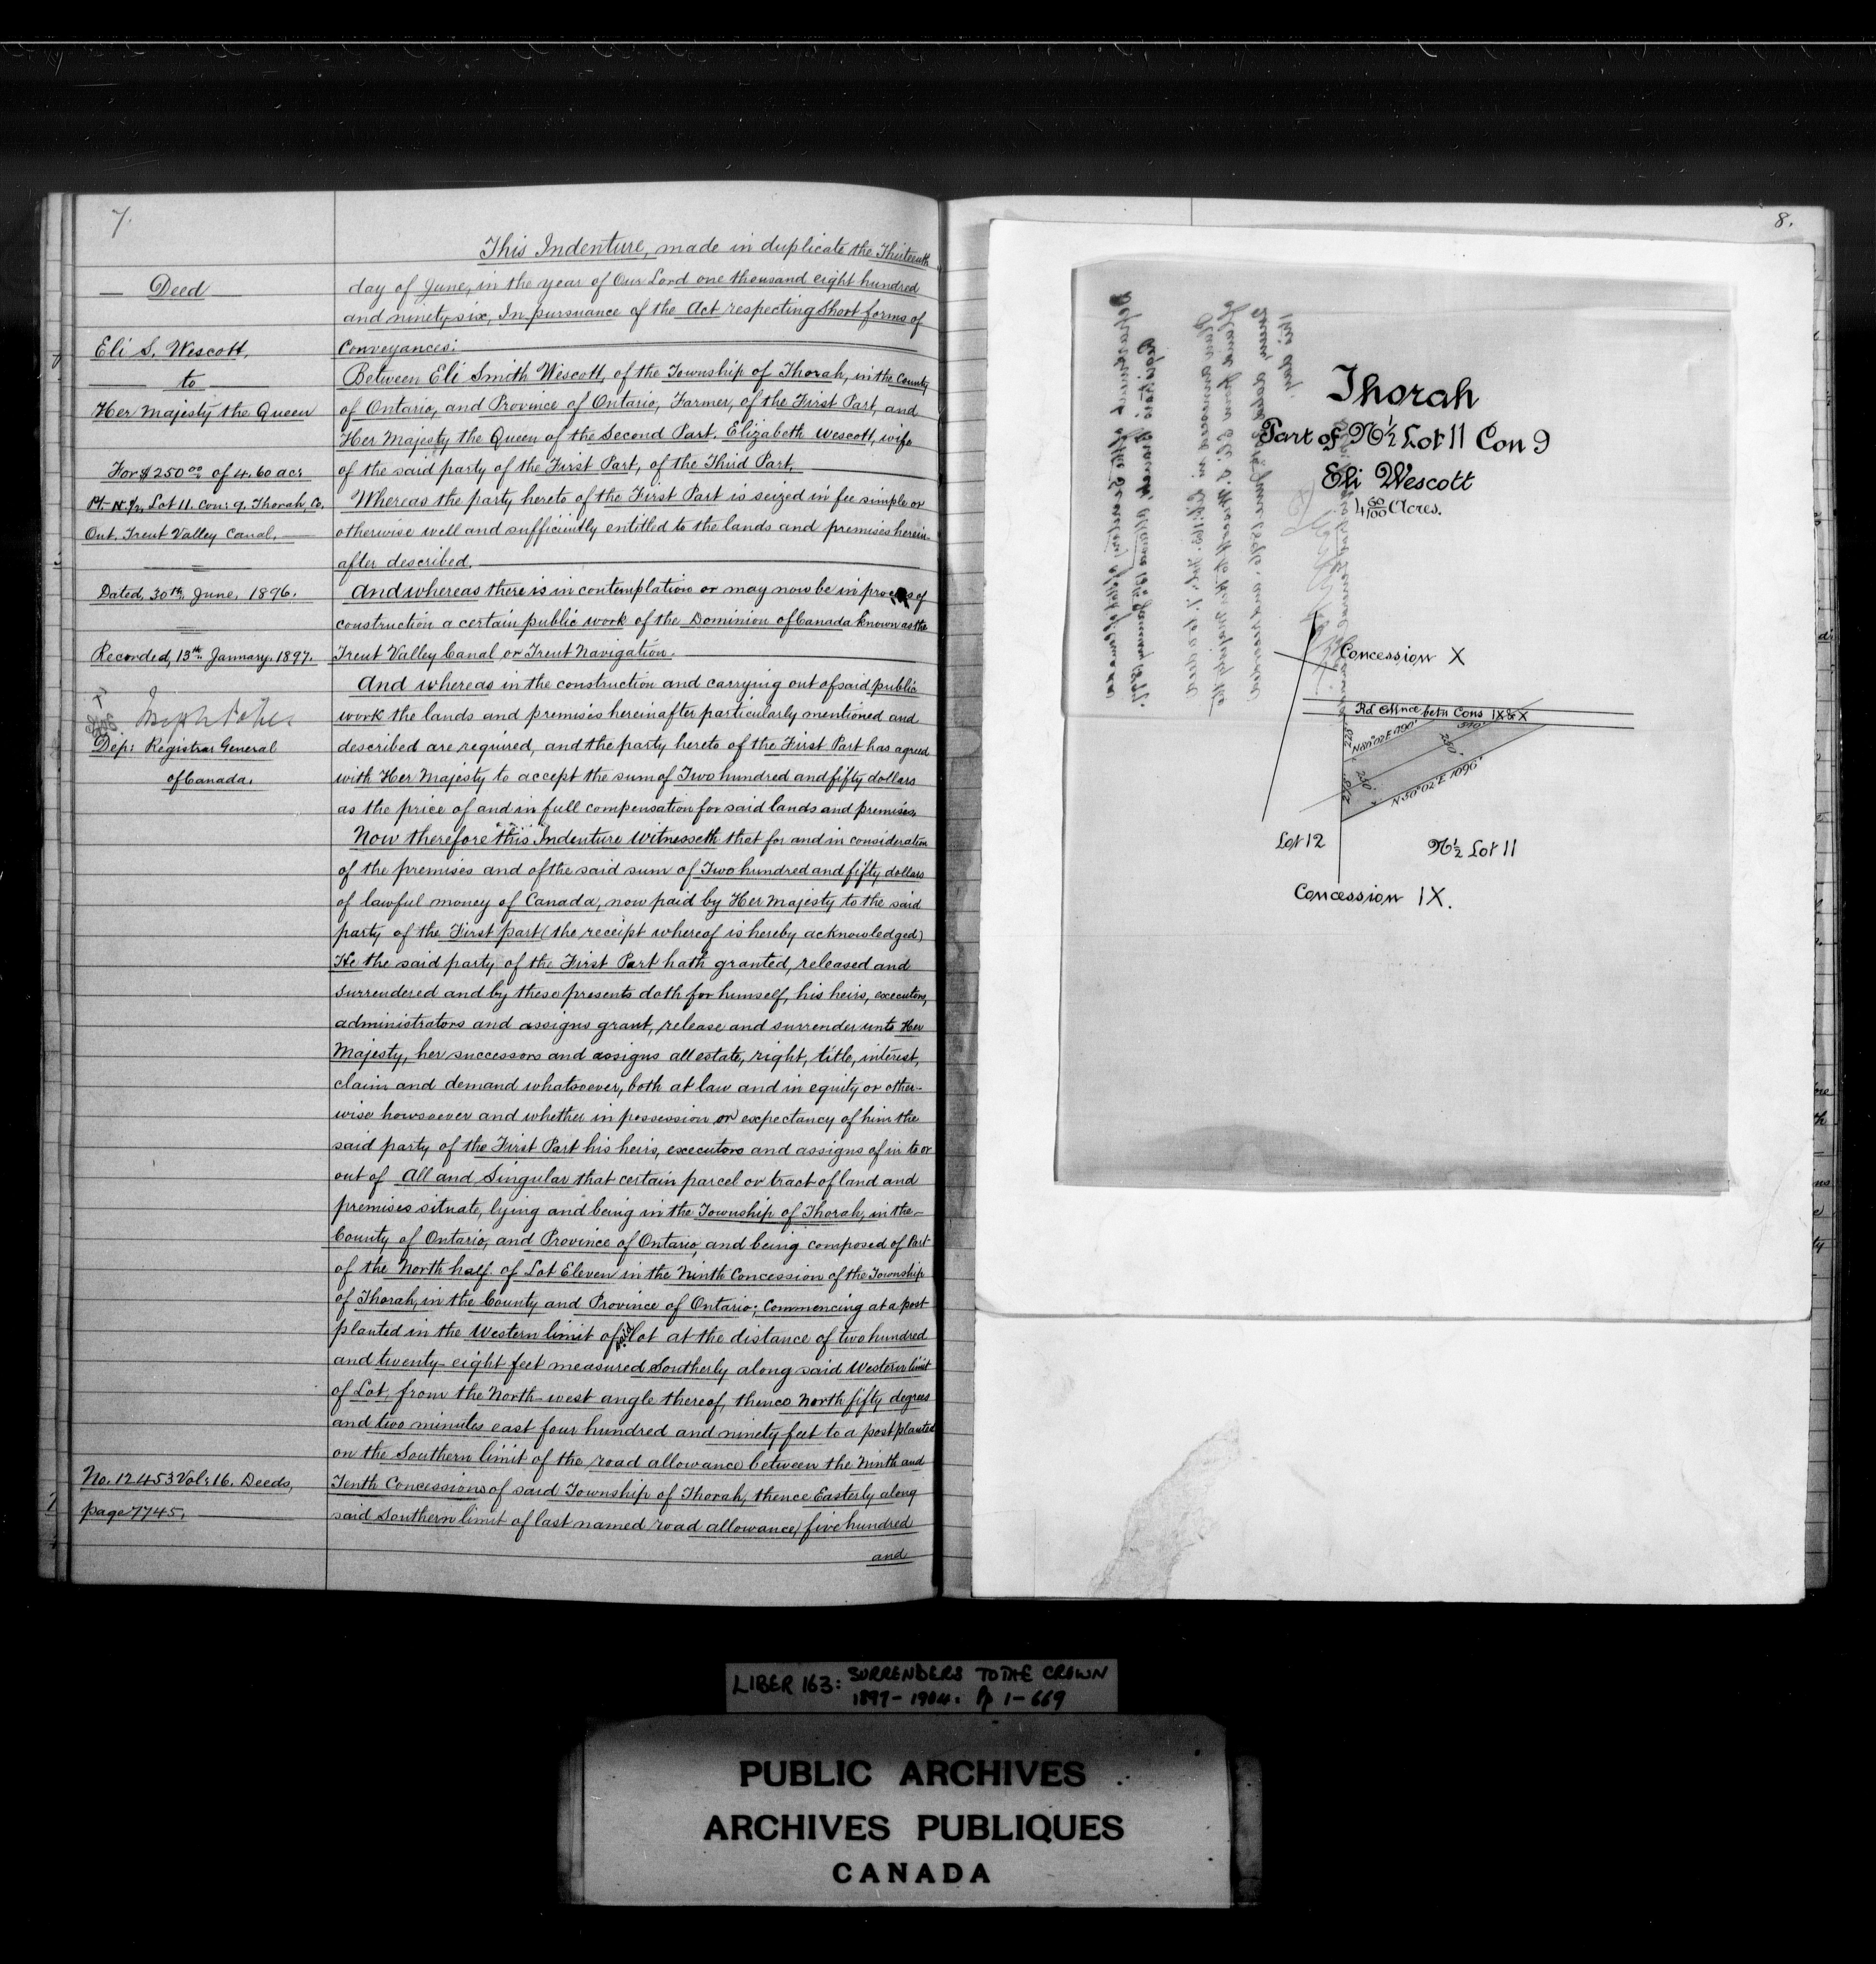 7.
Deed
Eli S. Wescott,
to
Her Majesty the Queen
For $250 00 of 4.60 acs
Pt. N. ½, Lot 11. Con: 9. Thorah, Co.
Ont. Trent Valley Canal.
Dated, 30th June, 1896.
Recorded, 13th January, 1897.
Dep: Registrar General
of Canada.
No. 12453 Vol: 16. Deeds,
page 7745.
This Indenture, made in duplicate the Thirteenth
day of June, in the year of Our Lord one thousand eight hundred
and ninety-six, In pursuance of the Act respecting Short forms of
Conveyances:
Between Eli Smith Wescott, of the Township of Thorah, in the County
of Ontario, and Province of Ontario, Farmer, of the First Part, and
Her Majesty the Queen of the Second Part. Elizabeth Wescott, wife
of the said party of the First Part, of the Third Part.
Whereas the party hereto of the First Part is seized in fee simple or
otherwise well and sufficiently entitled to the lands and premises herein-
after described.
And whereas there is in contemplation or may now be in process of
construction a certain public work of the Dominion of Canada known as the
Trent Valley Canal or Trent Navigation.
And whereas in the construction and carrying out of said public
work the lands and premises hereinafter particularly mentioned and
described are required, and the party hereto of the First Part has agreed
with Her Majesty to accept the sum of Two hundred and fifty dollars
as the price of and in full compensation for said lands and premises.
Now therefore this Indenture Witnesseth that for and in consideration
of the premises and of the said sum of Two hundred and fifty dollars
of lawful money of Canada, now paid by Her Majesty to the said
party of the First part (the receipt whereof is hereby acknowledged)
He the said party of the First Part hath granted, released and
surrendered and by these presents doth for himself, his heirs, executors,
administrators and assigns grant, release and surrender unto Her
Majesty, her successors and assigns all estate, right, title, interest,
claim and demand whatsoever, both at law and in equity or other-
wise howsoever and whether in possession or expectancy of him the
said party of the First Part his heirs, executors and assigns of in to or
out of All and Singular that certain parcel or tract of land and
premises situate, lying and being in the Township of Thorah, in the
County of Ontario, and Province of Ontario, and being composed of Part
of the North half of Lot Eleven in the Ninth Concession of the Township
of Thorah, in the County and Province of Ontario; Commencing at a post
planted in the Western limit of said lot at the distance of two hundred
and twenty-eight feet measured Southerly along said Western limit
of Lot, from the North-west angle thereof, thence North fifty degrees
and two minutes east four hundred and ninety feet to a post planted
on the Southern limit of the road allowance between the Ninth and
Tenth Concessions of said Township of Thorah, thence Easterly along
said Southern limit of last named road allowance, five hundred
and
8.
Thorah
Part of N½ Lot 11 Con 9
Eli Wescott
4 60/100 Acres.
Concession X
Rd Allnce betn Cons IX & X
N 50° 02' E 490'
N 50° 02' E 1096'
250'
250'
Lot 12
N½ Lot 11
Concession IX.
LIBER 163: SURRENDERS TO THE CROWN
1897-1904. Pp 1-669
PUBLIC ARCHIVES
ARCHIVES PUBLIQUES
CANADA